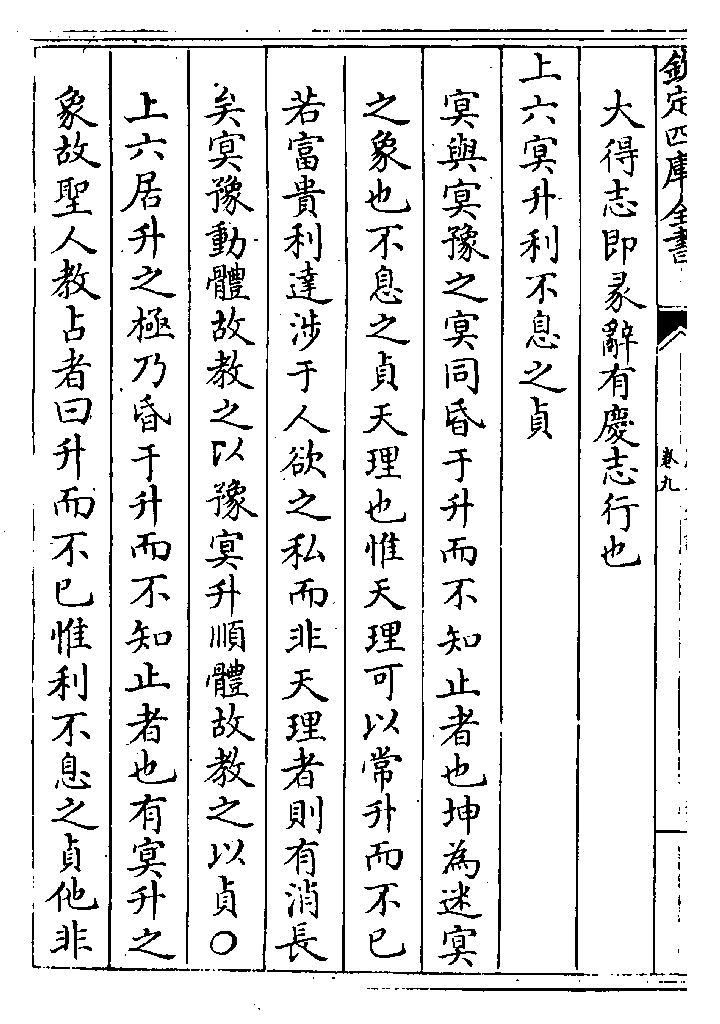 欽定四庫全書
卷九
大得志即彖辭有慶志行也
上六冥升利不息之貞
冥與冥豫之冥同昏于升而不知止者也坤為迷冥
之象也不息之貞天理也惟天理可以常升而不已
若富貴利達涉于人欲之私而非天理者則有消長
矣冥豫動體故教之以豫冥升順體故教之以貞〇
上六居升之極乃昏于升而不知止者也有冥升之
象故聖人教占者曰升而不已惟利不息之貞他非